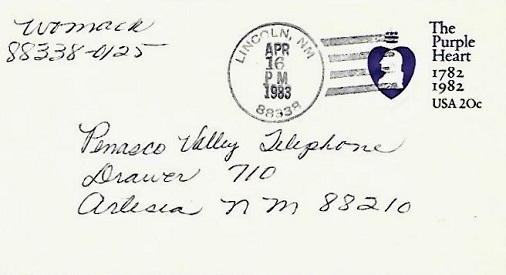 Womack
88338-0125
LINCOLN, NM
APR
16
PM
1983
88338
The
Purple
Heart
1782
1982
USA 20c
Penasco Valley Telephone
Drawer 710
Artesia NM 88210